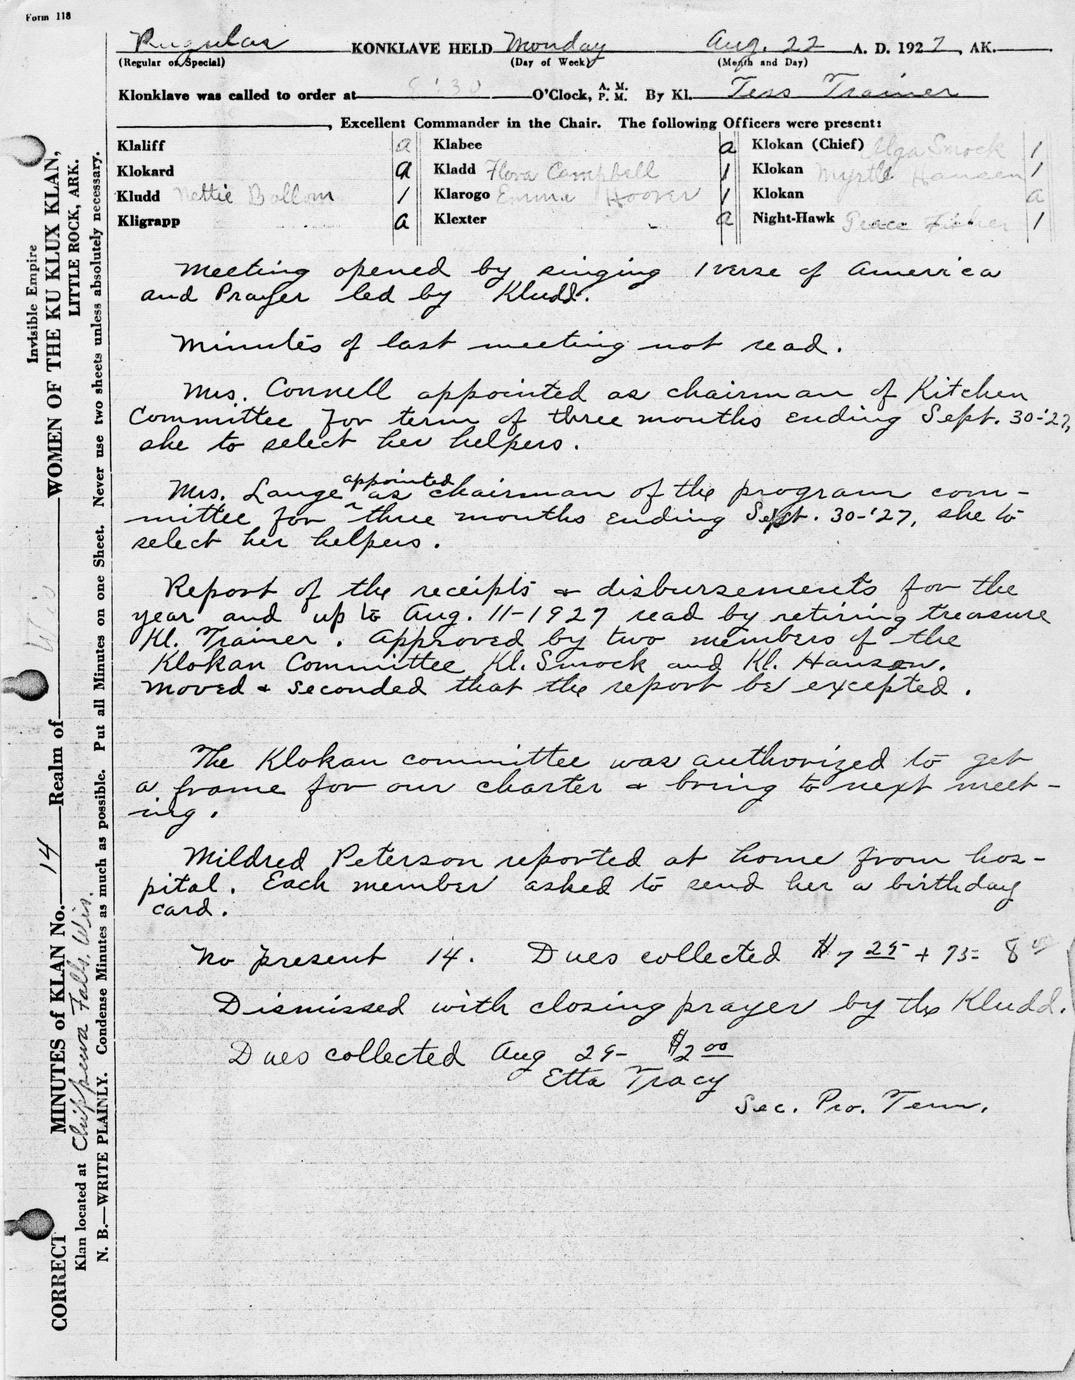 Form 118
Regular KONKLAVE HELD Monday Aug. 22 A. D. 1927, AK.
(Regular or Special) (Day of Week) (Month and Day)
Klonklave was called to order at 8:30 O'Clock, A. M. P. M. By Kl. Tess Trainer
, Excellent Commander in the Chair. The following Officers were present:
Klaliff a Klabee a Klokan (Chief) Olga Smock 1
Klokard a Kladd Flora Campbell 1 Klokan Myrtle Hansen 1
Kludd Nettie Bollom 1 Klarogo Emma Hoover 1 Klokan a
Kligrapp a Klexter a Night-Hawk Grace Fisher 1
Meeting opened by singing 1 verse of America
and Prayer led by Kludd.
Minutes of last meeting not read.
Mrs. Connell appointed as chairman of Kitchen
Committee for term of three months ending Sept. 30-'27,
she to select her helpers.
Mrs. Lange appointed as chairman of the program com-
mittee for three months ending Sept. 30-'27, she to
select her helpers.
Report of the receipts & disbursements for the
year and up to Aug. 11-1927 read by retiring treasure
Kl. Trainer. Approved by two members of the
Klokan Committee Kl. Smock and Kl. Hansen.
Moved & seconded that the report be excepted.
The Klokan committee was authorized to get
a frame for our charter & bring to next meet-
ing.
Mildred Peterson reported at home from hos-
pital. Each member asked to send her a birthday
card.
No present 14. Dues collected $7 25 + 75 = 8 00
Dismissed with closing prayer by the Kludd.
Dues collected Aug 29- $2 00
Etta Tracy
Sec. Pro. Tem.
CORRECT MINUTES of KLAN No. 14 Realm of Wis WOMEN OF THE KU KLUX KLAN,
Invisible Empire
LITTLE ROCK, ARK.
Klan located at Chippewa Falls, Wis.
N. B.—WRITE PLAINLY. Condense Minutes as much as possible. Put all Minutes on one Sheet. Never use two sheets unless absolutely necessary.